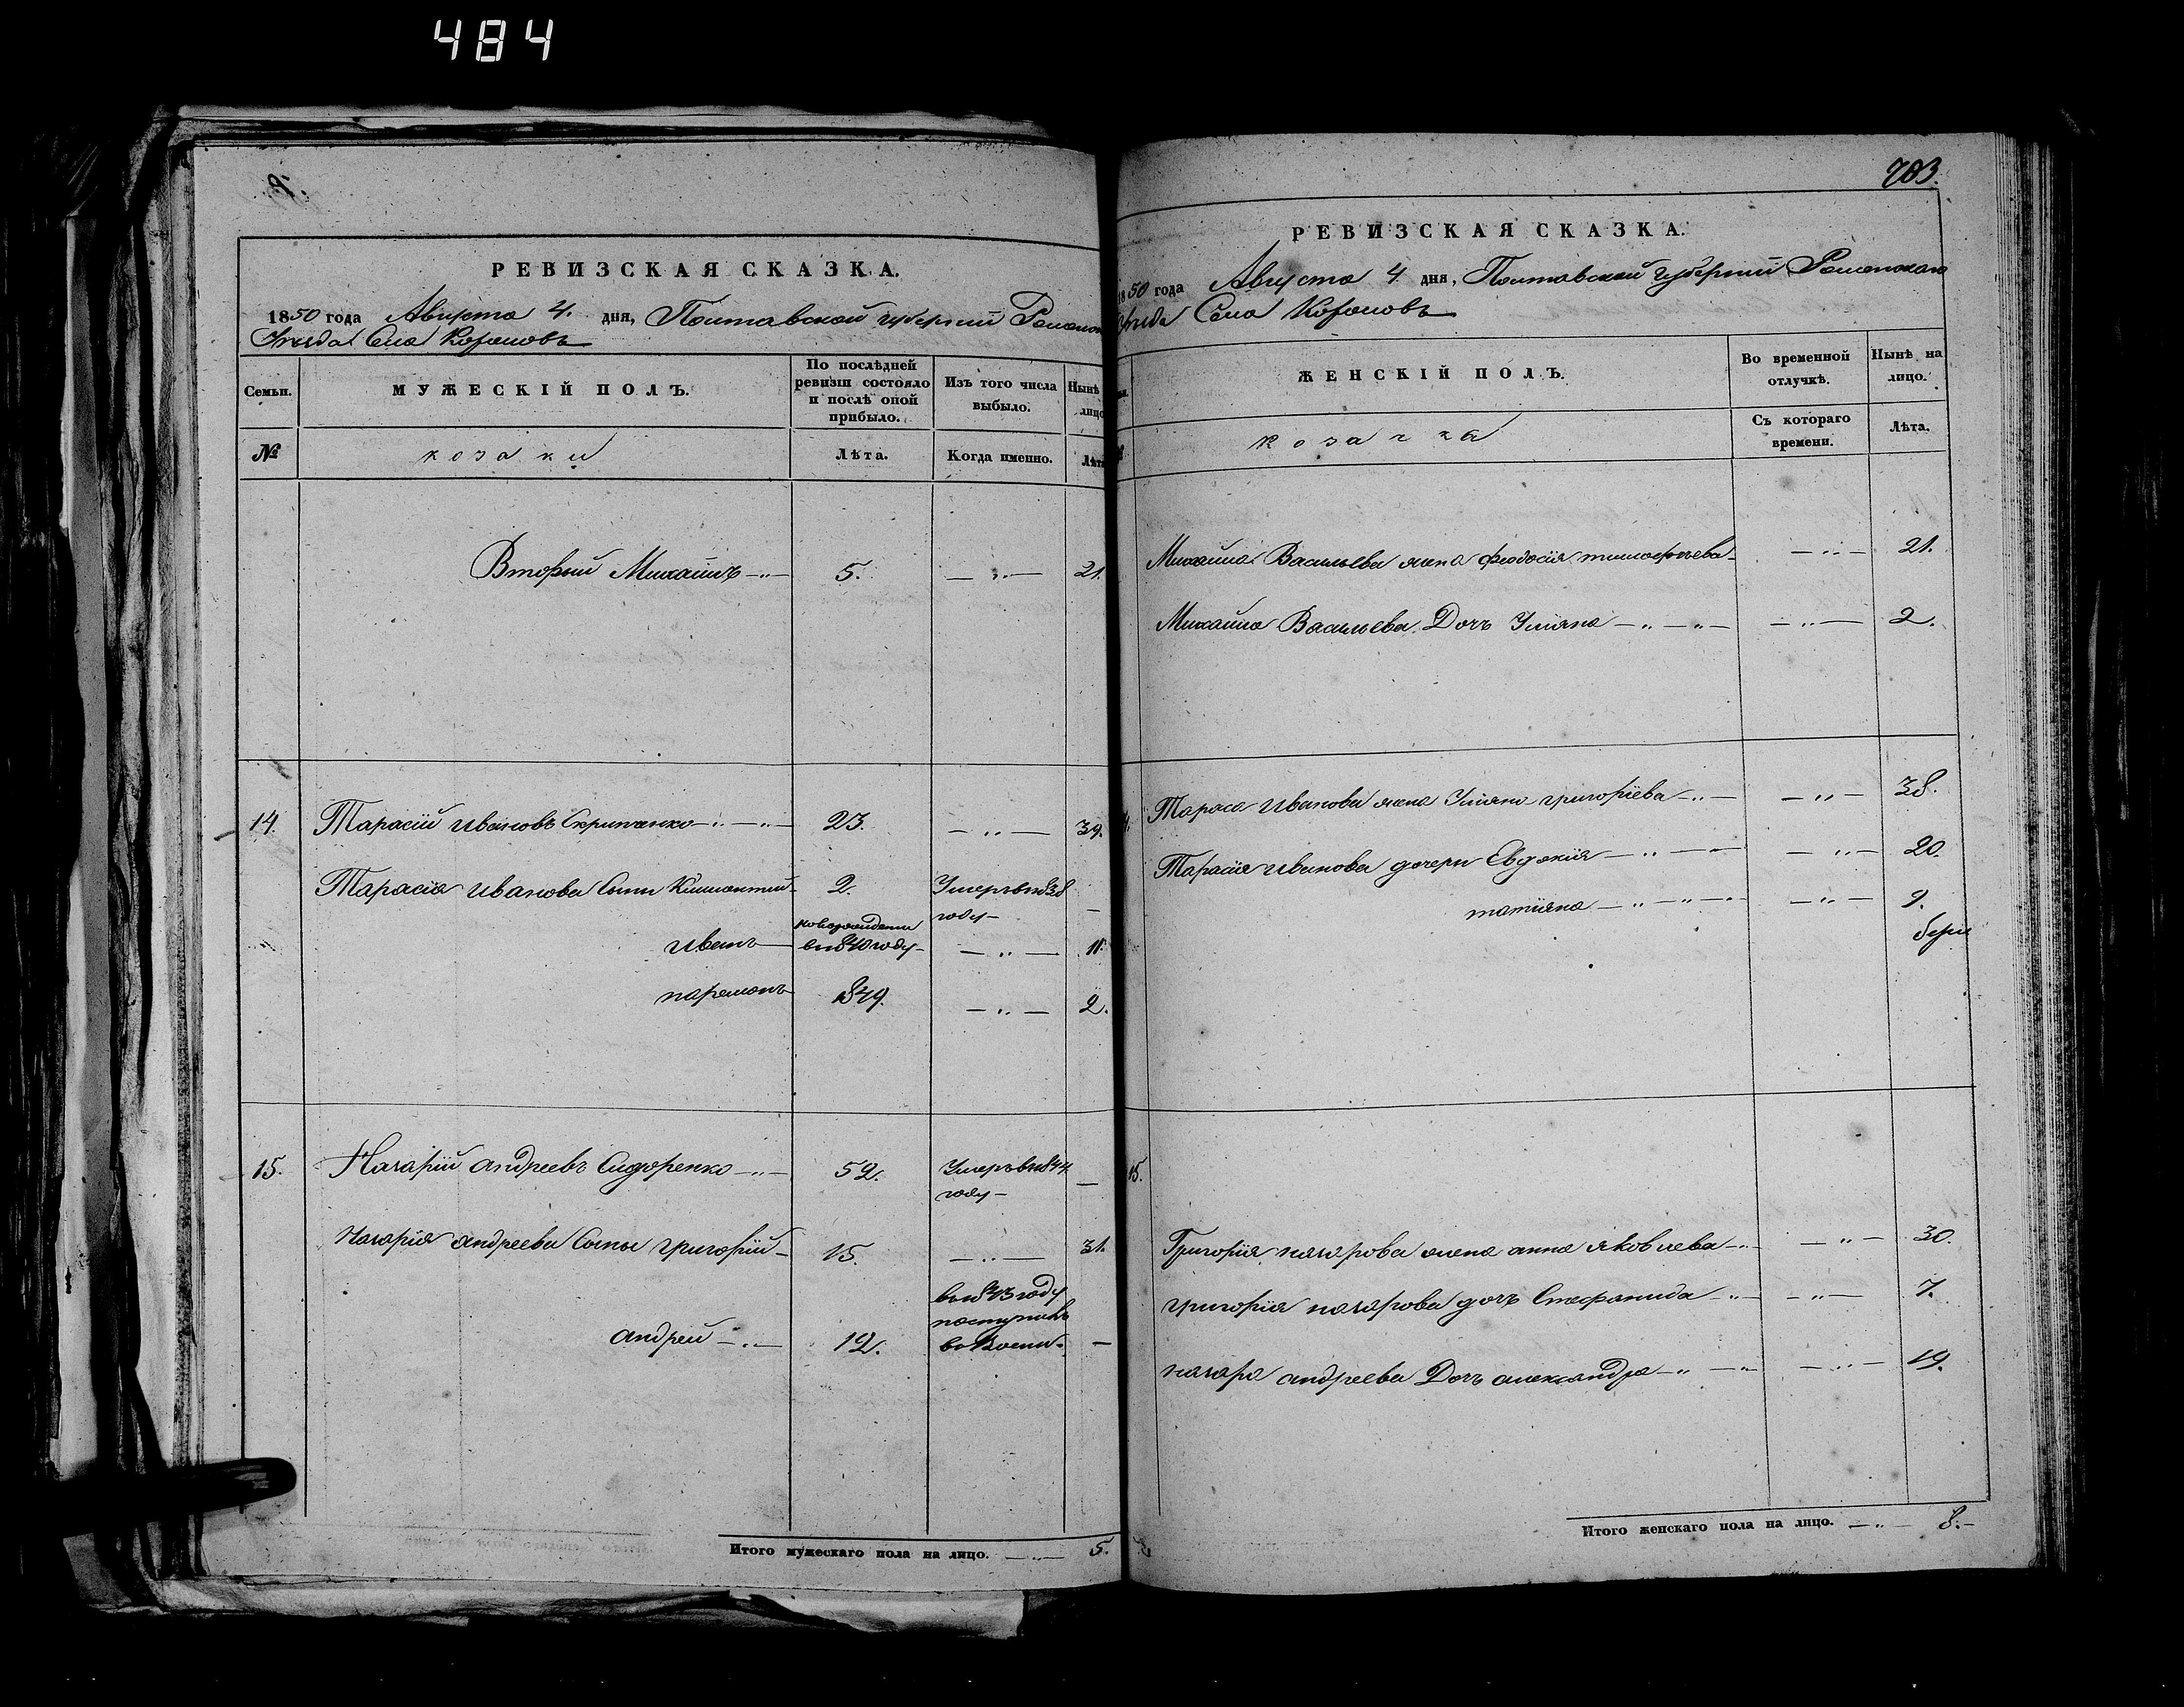 484
РЕВИЗСКАЯ СКАЗКА.
1850 года Августа 4. дня, Полтавской губернии
Уезда Села Корововъ
Семьи.
МУЖЕСКІЙ ПОЛЪ.
По послѣдней ревизіи состояло и послѣ оной прибыло.
Изъ того числа выбыло.
Нынѣ
лицо
№
козаки
Лѣта.
Когда именно.
Лѣта
Вторый Михаилъ 5. 21.
14. Тарасій Ивановъ Скрипченко 23. 39.
Тарасія Иванова Сыны Климентий 2. Умеръ въ 1838
году
новорожденъ
Иванъ в 1840 году 11.
парамонъ 1849. 2.
15. Назарій андреевъ Сидоренко 52. Умеръ въ 1844
году
Назарія андреева Сыны григорій 15. 31.
в 1843 году
поступилъ
андрей 12. в Воен.
Итого мужескаго пола на лицо. 5.
703.
РЕВИЗСКАЯ СКАЗКА.
1850 года Августа 4 дня, Полтавской губернии Роменского
Уезда Села Корововъ
ЖЕНСКІЙ ПОЛЪ.
Во временной отлучкѣ.
Нынѣ на лицо.
козачка
Съ котораго времени.
Лѣта.
Михайла Васильева жена феодосія тимофеева 21.
Михайла Васильева Дочь Уляна 2.
Тараса Иванова жена Уляна григоріева 38.
Тарасія Иванова дочери Евдокия 20.
татияна 9.
15.
Григорія назарова жена анна яковлева 30.
григорія назарова дочь Стефанида 7.
назара андреева Дочь александра 19.
Итого женскаго пола на лицо. 8.